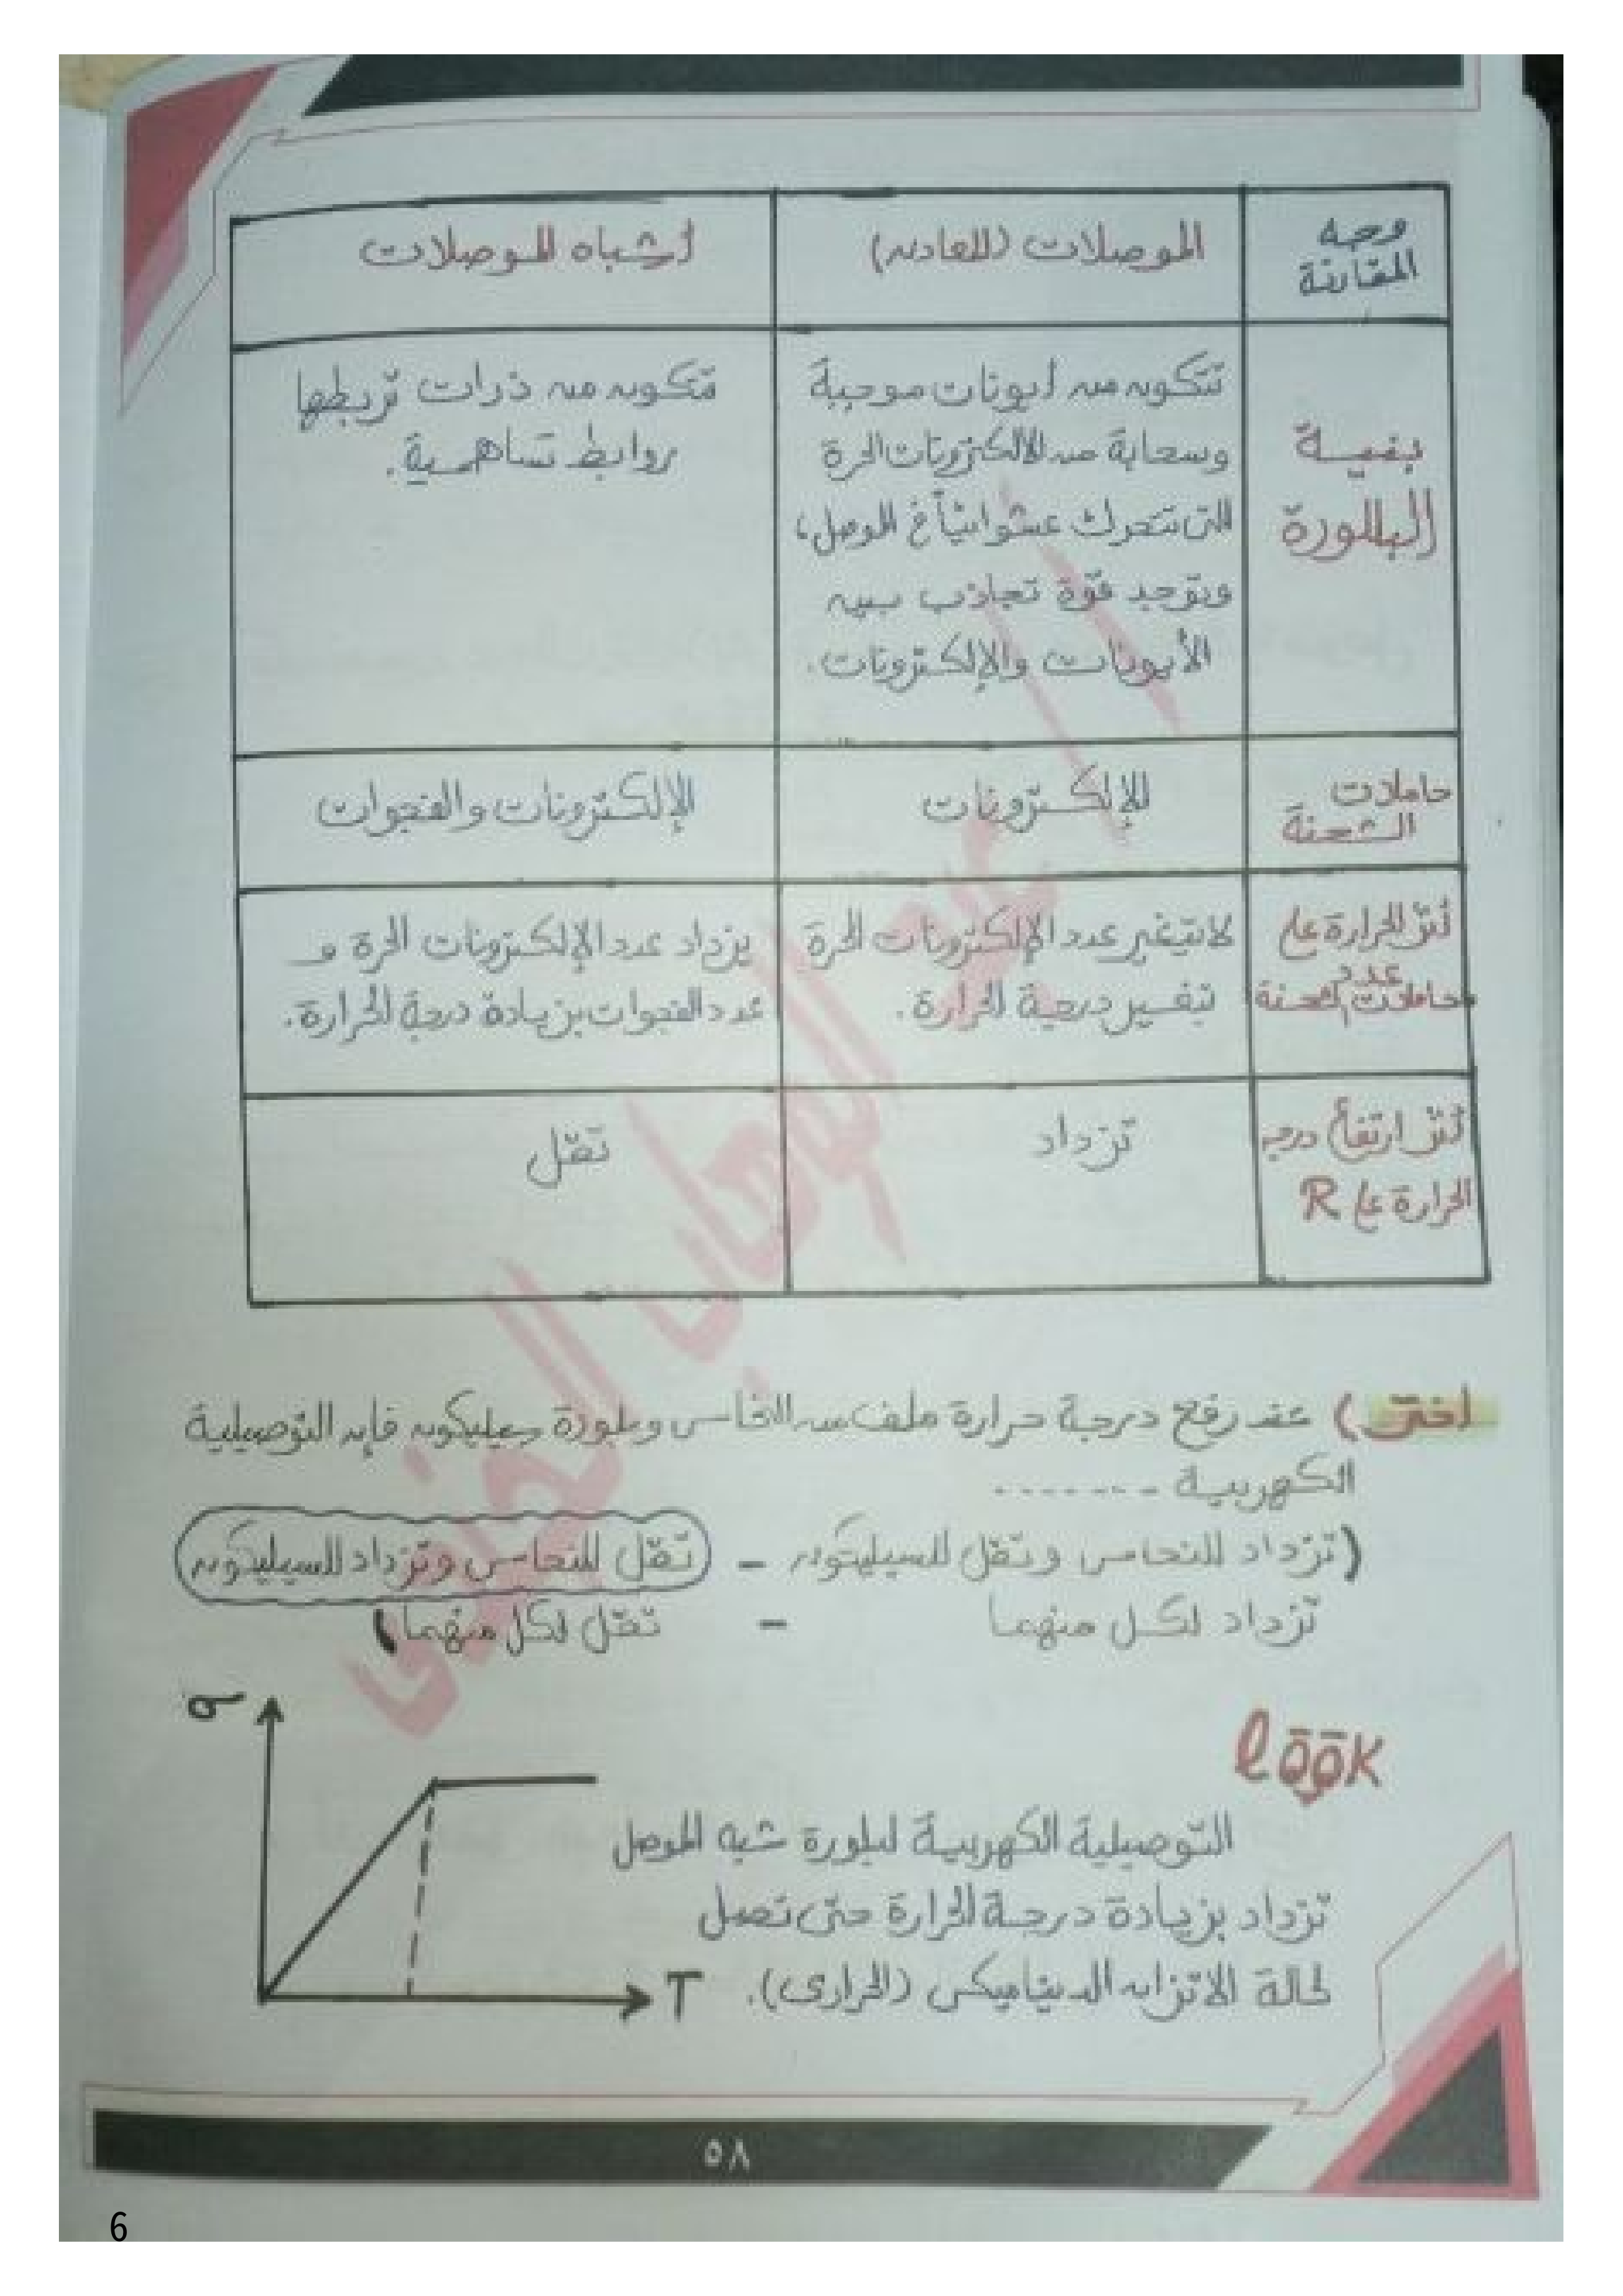 وجه
المقارنة
الموصلات (المعادن)
أشباه الموصلات
بنية
البللورة
تتكون من أيونات موجبة
وسحابة من الالكترونات الحرة
التى تتحرك عشوائياً فى الموصل،
وتوجد قوة تجاذب بين
الأيونات والإلكترونات.
تتكون من ذرات تربطها
روابط تساهمية.
حاملات
الشحنة
الإلكترونات
الإلكترونات والفجوات
أثر الحرارة على
عدد
حاملات الشحنة
لا يتغير عدد الإلكترونات الحرة
بتغيير درجة الحرارة.
يزداد عدد الإلكترونات الحرة و
عدد الفجوات بزيادة درجة الحرارة.
أثر ارتفاع درجه
الحرارة على R
تزداد
تقل
اختر) عند رفع درجة حرارة ملف من النحاس وبلورة سيليكون فإن التوصيلية
الكهربية -------
(تزداد للنحاس وتقل للسيليكون - تقل للنحاس وتزداد للسيليكون
تزداد لكل منهما - تقل لكل منهما)
look
σ
التوصيلية الكهربية لبلورة شبه الموصل
تزداد بزيادة درجة الحرارة حتى تصل
لحالة الاتزان الديناميكى (الحرارى).
T
٥٨
6